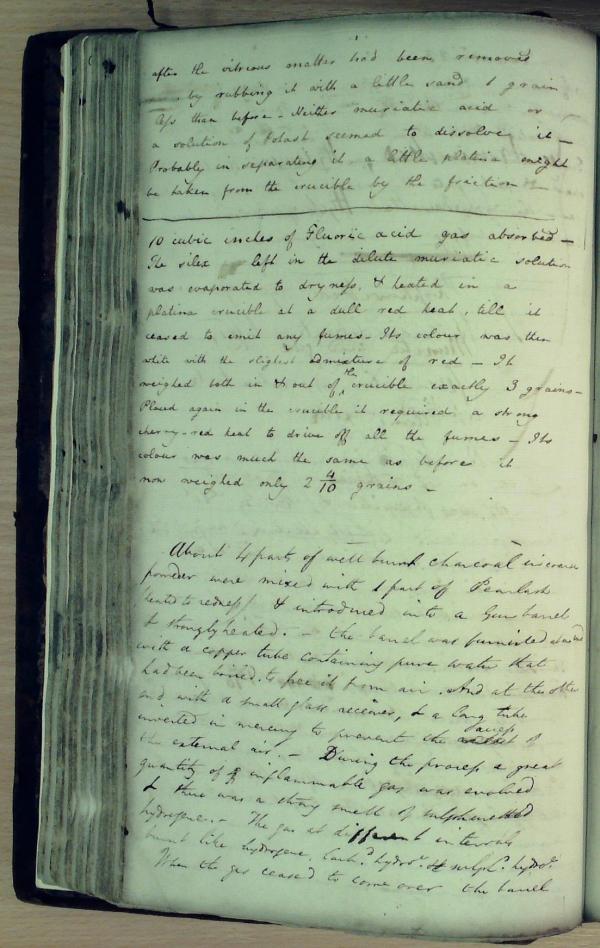 after the vitrious matter had been removed
by rubbing it with a little sand 1 grain
less than before - Neither muriatic acid or
a solution of Potash seemed to dissolve it -
Probably in separating it a little platina might
be taken from the crucible by the friction -
10 cubic inches of Fluoric acid gas absorbed -
The silex left in the dilute muriatic solution
was evaporated to dryness, & heated in a
platina crucible at a dull red heat, till it
ceased to emit any fumes - Its colour was then
white with the slightest admixture of red - It
weighed both in & out of the crucible exactly 3 grains -
Placed again in the crucible it required a strong
cherry-red heat to drive off all the fumes - Its
colour was much the same as before it
now weighed only 2 4/10 grains -
About 4 parts of well burnt charcoal in coarse
powder were mixed with 1 part of Pearlash
heated to redness & introduced into a Gun barrel
& strongly heated. - the barrel was furnished at one end
with a copper tube containing pure water that
had been boiled to free it from air. And at the other
end with a small glass receiver, & a long tube
inverted in mercury to prevent the access of
the external air. - During the process a great
quantity of inflammable gas was evolved
& there was a strong smell of sulphuretted
hydrogene. - The gas at different intervals
burnt like hydrogene, Carb.d hydro.e & sulph.d hydro.e
When the gas ceased to come over the barrel